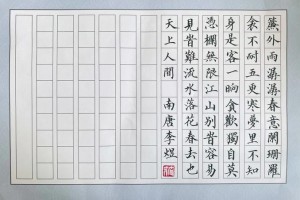 簾外雨潺潺春意闌珊羅
衾不耐五更寒夢里不知
身是客一晌貪歡獨自莫
憑欄無限江山別旹容易
見旹難流水落花春去也
天上人間 南唐李煜